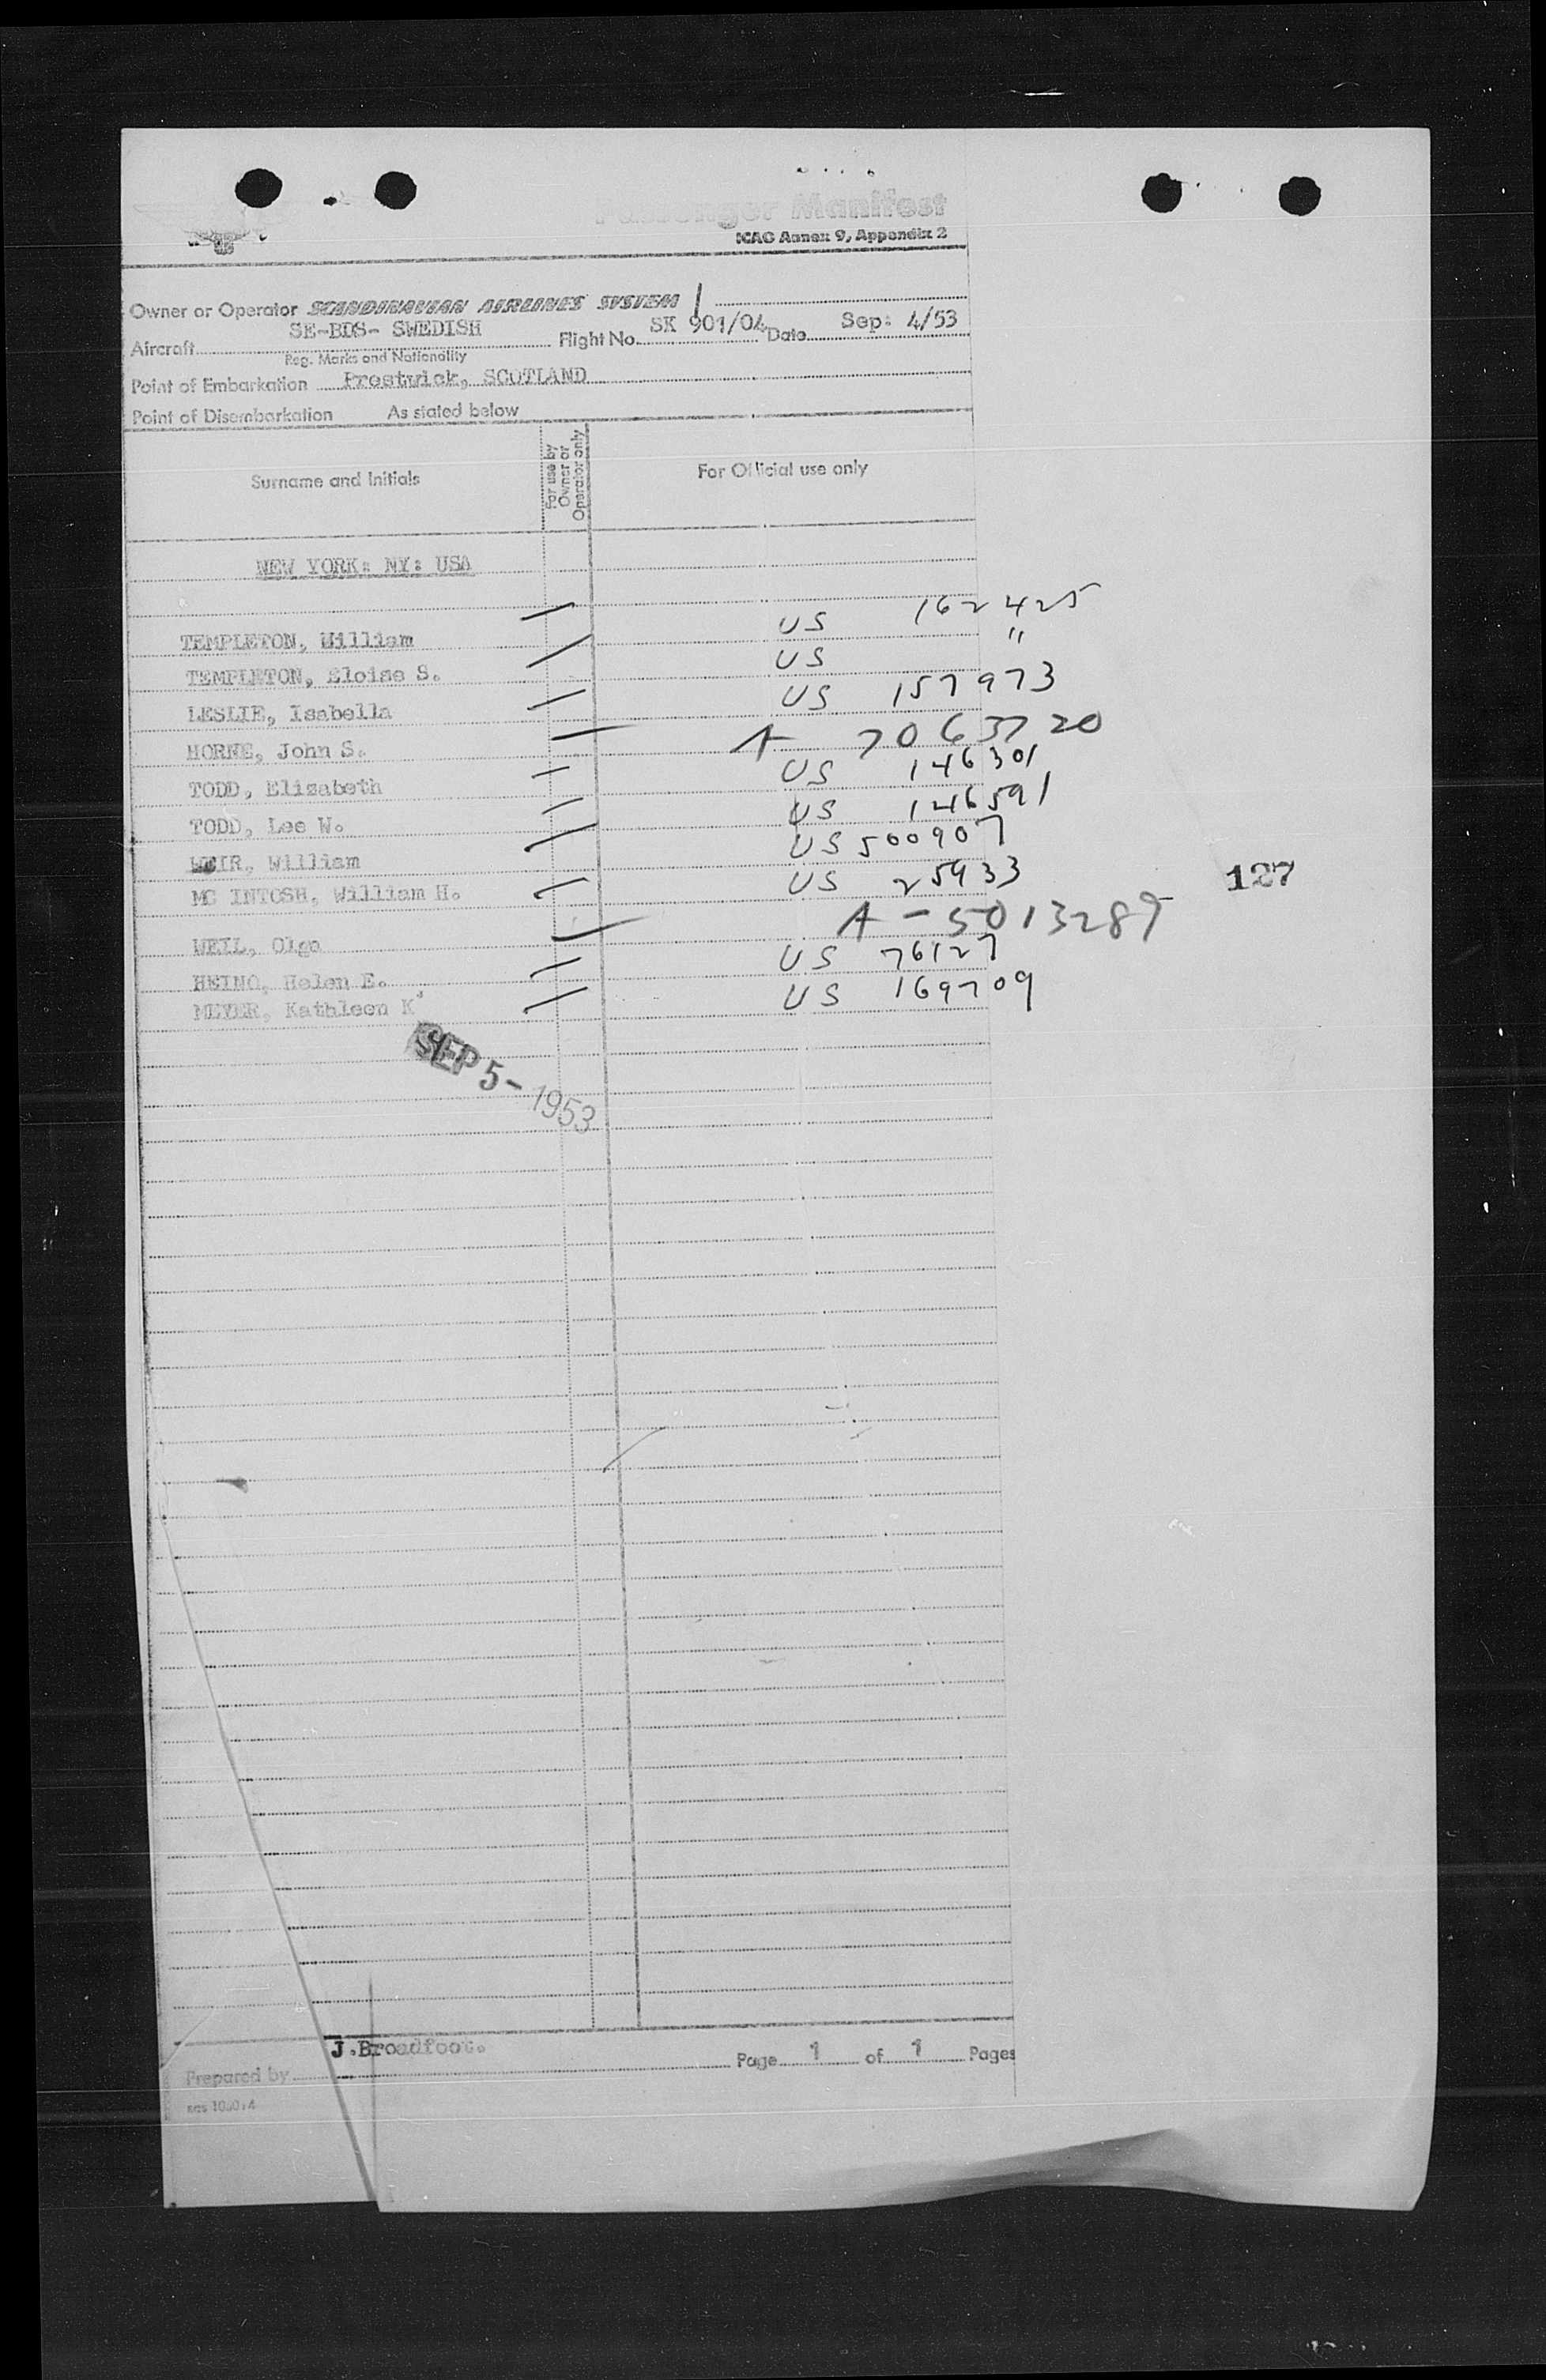 Passenger Manifest
ICAO Annex 9, Appendix 2
Owner or Operator SCANDINAVIAN AIRLINES SYSTEM
Aircraft SE-BDS- SWEDISH Flight No. SK 901/04 Date Sep: 4/53
Reg. Marks and Nationality
Point of Embarkation Prestwick, SCOTLAND
Point of Disembarkation As stated below
Surname and Initials For use by Owner or Operator only For Official use only
NEW YORK: NY: USA
TEMPLETON, William US 162425
TEMPLETON, Eloise S. US "
LESLIE, Isabella US 157973
HORNE, John S. A 7063720
TODD, Elizabeth US 146301
TODD, Lee W. US 146591
WEIR, William US 500907
MC INTOSH, William H. US 25933
127
WEIL, Olga A-5013289
HEINO, Helen E. US 76127
MEYER, Kathleen K US 169709
SEP 5- 1953
Prepared by J.Broadfoot. Page 1 of 1 Pages